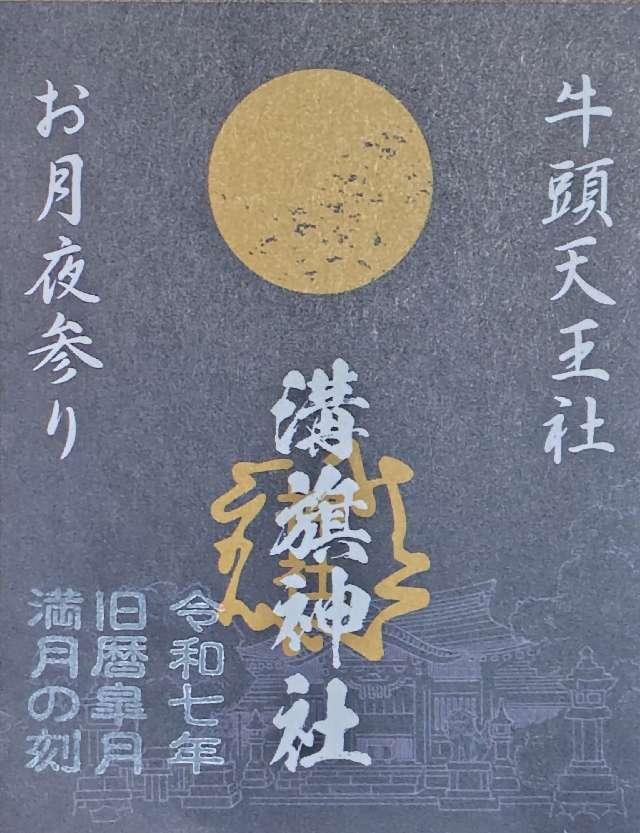 牛頭天王社
溝旗神社
お月夜参り
令和七年
旧暦皐月
満月の刻